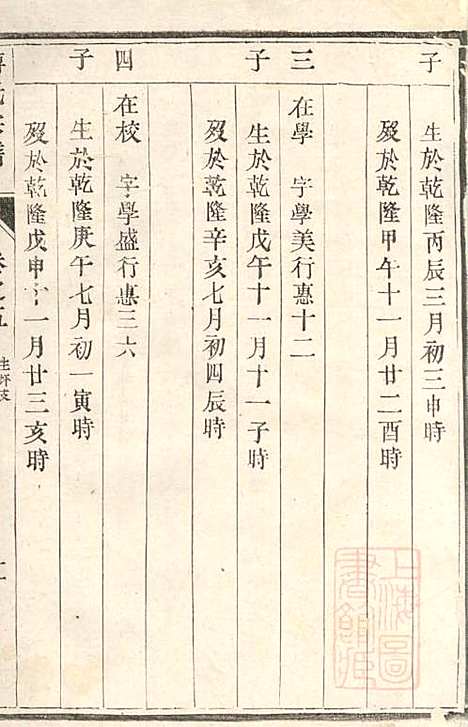 子
生於乾隆丙辰三月初三申時
殁於乾隆甲午十一月廿二酉時
三子
在學 字學美行惠十二
生於乾隆戊午十一月十一子時
殁於乾隆辛亥七月初四辰時
四子
在校 字學盛行惠三六
生於乾隆庚午七月初一寅時
殁於乾隆戊申十一月廿三亥時
上海圖書館藏